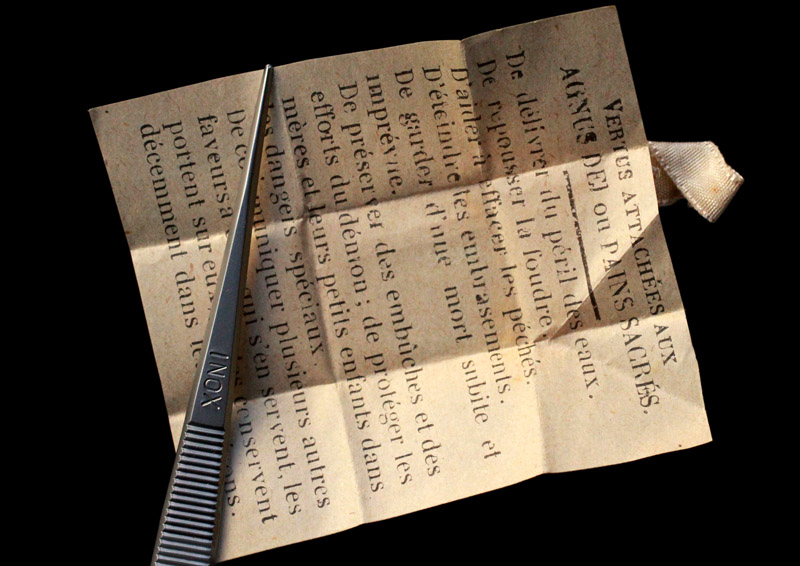 VERTUS ATTACHÉES AUX
AGNUS DEI ou PAINS SACRÉS.
De délivrer du péril des eaux.
De repousser la foudre.
D'aider à effacer les péchés.
D'éteindre les embrasements.
De garder d'une mort subite et
imprévue.
De préserver des embûches et des
efforts du démon; de protéger les
mères et leurs petits enfants dans
dangers spéciaux
De plusieurs autres
faveurs qui s'en servent, les
portent sur eux conservent
décemment dans
INOX